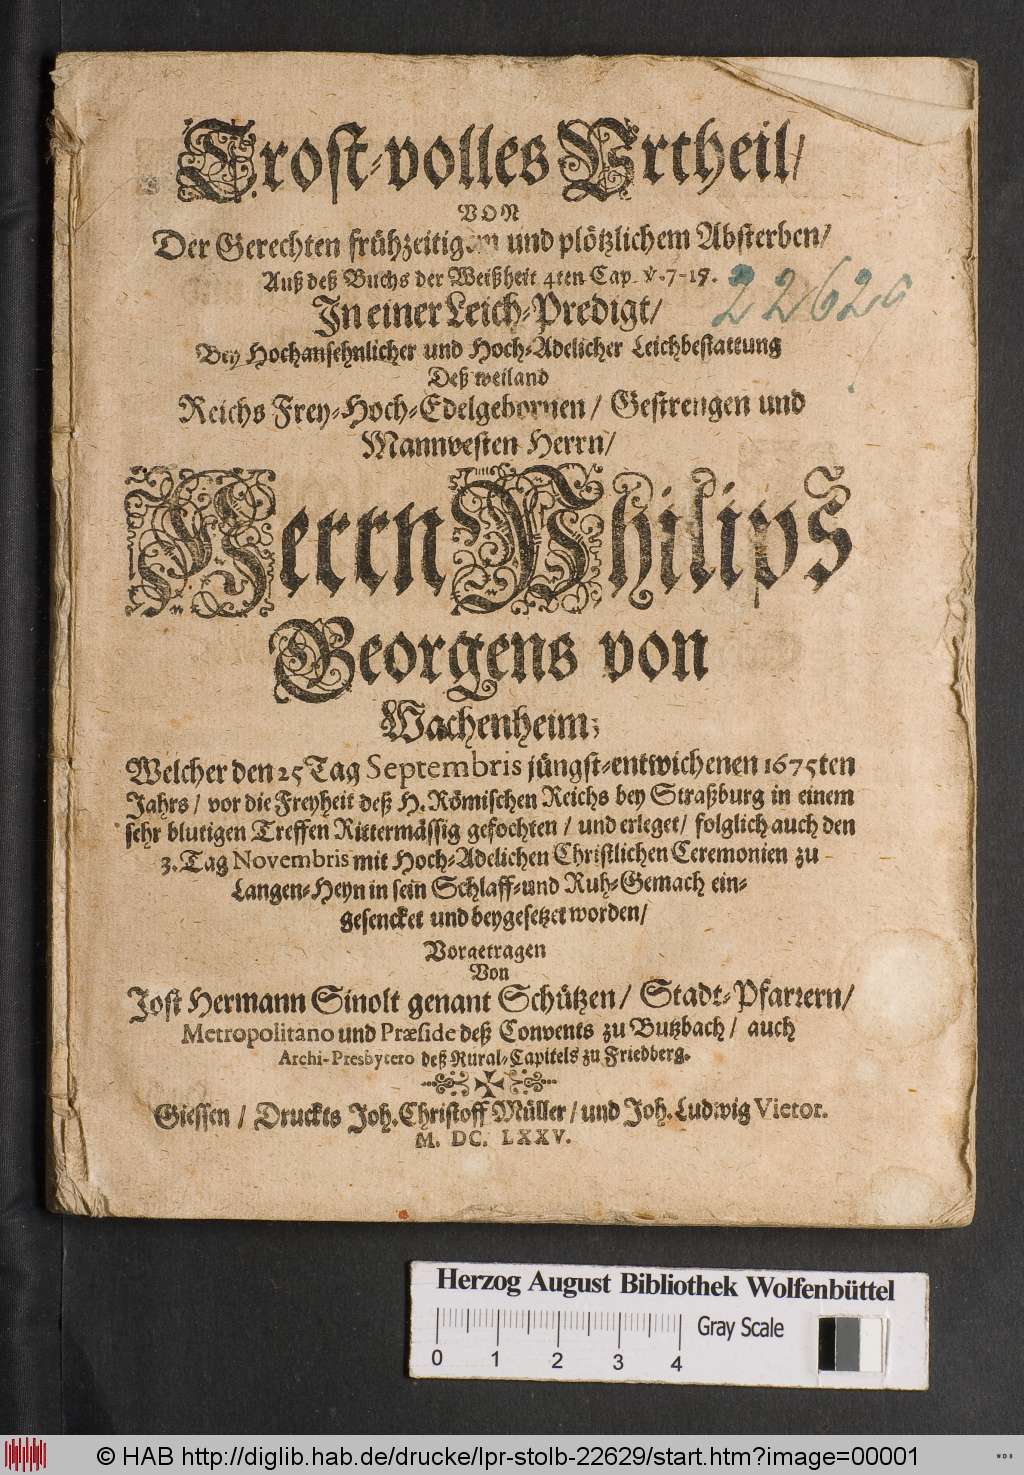 Trost-volles Urtheil/
VON
Der Gerechten frühzeitigem und plötzlichem Absterben/
Auß deß Buchs der Weißheit 4ten Cap. ℣.7-15.
In einer Leich-Predigt/
Bey Hochansehnlicher und Hoch-Adelicher Leichbestattung
Deß weiland
Reichs Frey-Hoch-Edelgebornen/ Gestrengen und
Mannvesten Herrn/
Herrn Philips
Georgens von
Wachenheim;
Welcher den 25 Tag Septembris jüngst-entwichenen 1675ten
Jahrs/ vor die Freyheit deß H. Römischen Reichs bey Straßburg in einem
sehr blutigen Treffen Rittermässig gefochten/ und erleget/ folglich auch den
3. Tag Novembris mit Hoch-Adelichen Christlichen Ceremonien zu
Langen-Heyn in sein Schlaff-und Ruh-Gemach ein-
gesencket und beygesetzet worden/
Vorgetragen
Von
Jost Hermann Sinolt genant Schützen/ Stadt-Pfarrern/
Metropolitano und Præside deß Convents zu Butzbach/ auch
Archi-Presbytero deß Rural-Capitels zu Friedberg.
Giessen/ Druckts Joh. Christoff Müller/ und Joh. Ludwig Vietor.
M. DC. LXXV.
22629
Herzog August Bibliothek Wolfenbüttel
Gray Scale
0 1 2 3 4
© HAB http://diglib.hab.de/drucke/lpr-stolb-22629/start.htm?image=00001